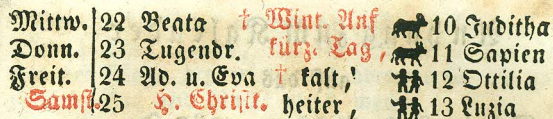 Mittw. 22 Beata † Wint. Anf 10 Juditha
Donn. 23 Tugendr. kürz. Tag, 11 Sapien
Freit. 24 Ad. u. Eva † kalt, 12 Ottilia
Samst. 25 H. Christt. heiter, 13 Luzia